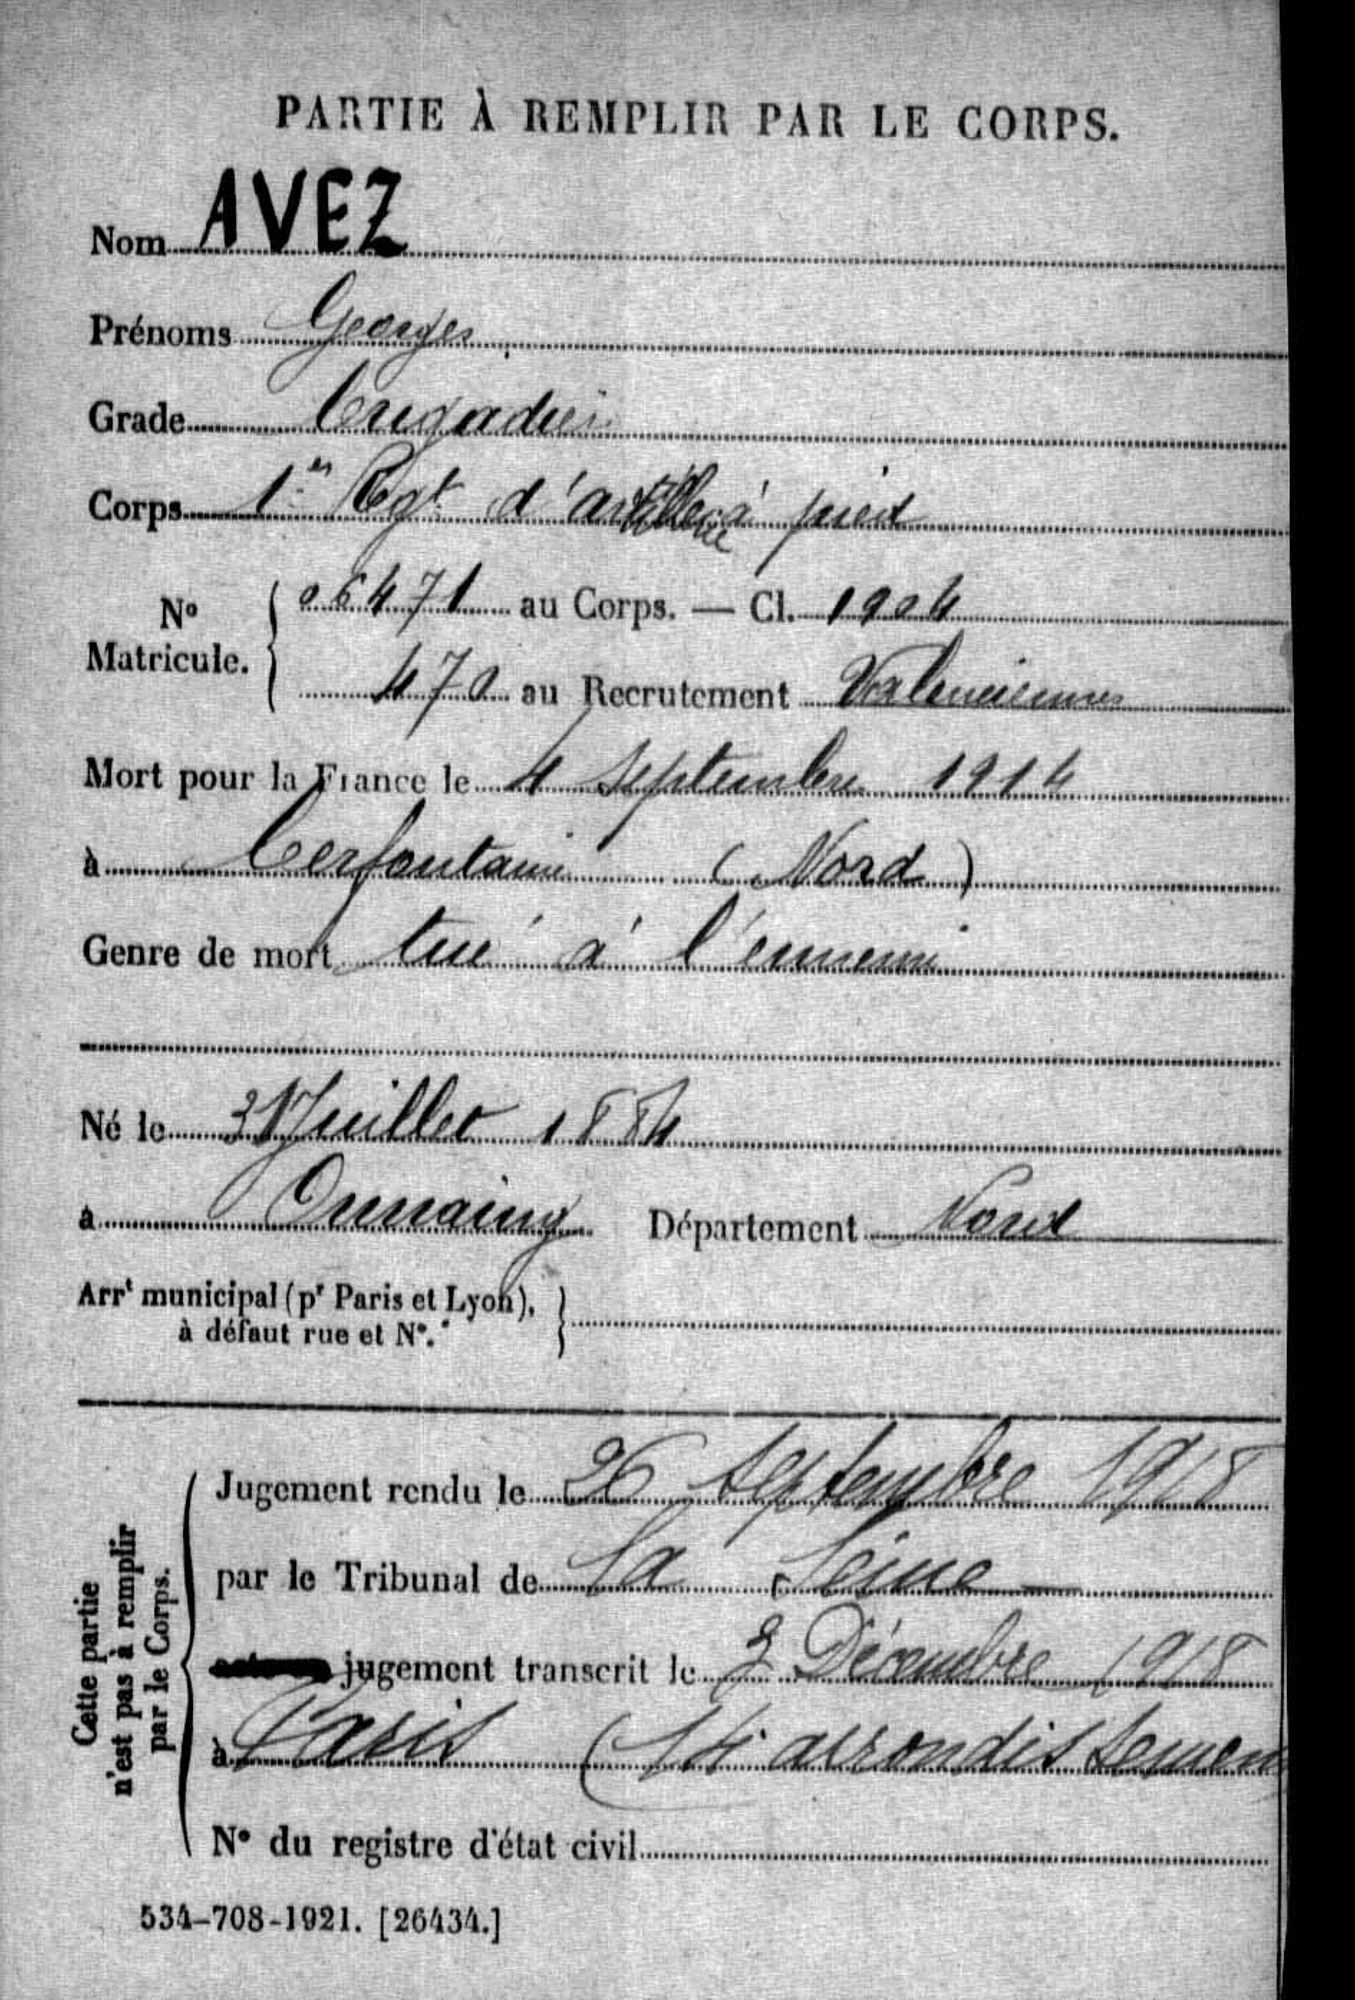 PARTIE À REMPLIR PAR LE CORPS.
Nom AVEZ
Prénoms Georges
Grade brigadier
Corps 1er Rgt d'artillerie à pied
No Matricule. { 06471 au Corps. — Cl. 1904
470 au Recrutement Valenciennes
Mort pour la France le 4 septembre 1914
à Cerfontaine (Nord)
Genre de mort tué à l'ennemi
Né le Juillet 1884
à Onnaing Département Nord
Arrt municipal (pr Paris et Lyon), }
à défaut rue et No.
Cette partie n'est pas à remplir par le Corps.
Jugement rendu le 26 septembre 1918
par le Tribunal de la Seine
jugement transcrit le 3 Décembre 1918
à Paris (14 arrondissement
No du registre d'état civil
534-708-1921. [26434.]